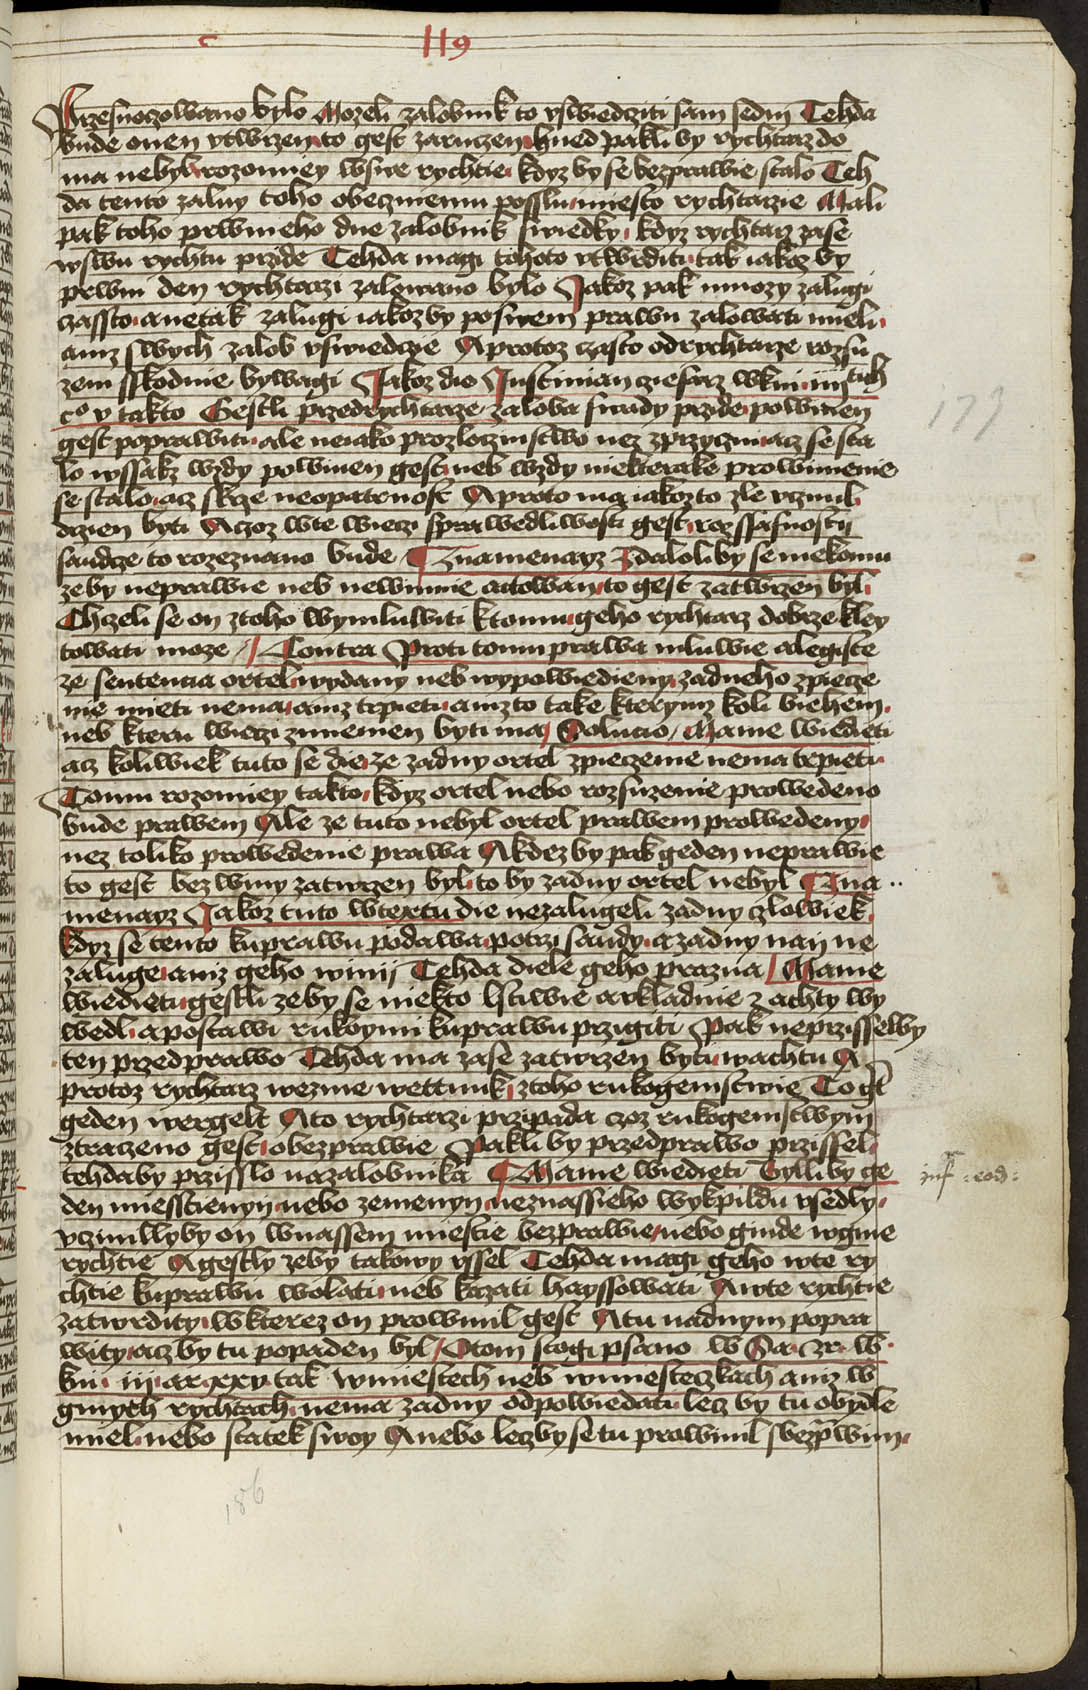 c 119
Przesnoczowano bylo Mozeli zalobnik to vswiedcziti sam sedm Tehda
bude onen vtwrzen to gest zarucżen hned Pakli by rychtarz do
ma nebyl rozomiey wswe rychtie kdyz by se bezprawie stalo Teh
da tento zaluy toho obecznemu posslu miesto rychtarzie Mali
pak toho prwnieho dne zalobnik swiedky kdyz rychtarz zase
wswu rychtu przide Tehda magi tohoto vtwrditi tak iakoz by
prwni den rychtarzi zalowano bylo Jakoz pak mnozy zalugi
czassto a netak zalugi iakoz by poswem prawu zalowati mieli
aniz swych zalob vswiedcze A protoz czasto od rychtarze rozsu
zeni sskodnie bywagi Jakoz die Justinian cziesarz wkni iiij tich
co v takto Gestli przedrychtarze zaloba swady przide powinen
gest poprawiti ale neiako prozloczinstwo nez zprzyczini acz se sta
lo wssakz wzdy powinen gest neb wzdy niekterake prowinienie
se stalo acz skrze neopatrnost A proto ma iakozto zle vczinil
drzien byti A czoz wte wieczi sprawedliwosti gest rozssafnosti
saudcze to rozeznano bude Znamenayz Zdaloliby se niekomu
zeby neprawie neb newinnie actowan to gest zatwrzen byl
Chczeli se on ztoho wymluwiti ktomu geho rychtarz dobrze kley
towati moze Contra Proti tomu prawa mluwie a legiste
ze sentencia ortel wydany neb wypowiedieny zadneho zpiecze
nie mieti nema aniz trpieti aniz to take kterymz koli biehem
neb kteru wieczi zmienien byti ma Solucio Mame wiedieti
acz koliwiek tuto se die ze zadny ortel zpieczenie nema trpieti
Tomu rozomiey takto kdyz ortel nebo rozsuzenie prowedeno
bude prawem Ale ze tuto nebyl ortel prawem prowedeny
nez toliko prowedenie prawa A kdez by pak geden neprawie
to gest bez winy zatwrzen byl to by zadny ortel nebyl Zna
menayz Jakoz tuto wtextu die nezalugeli zadny czlowiek
kdyz se tento kuprawu podawa potrzi saudy a zadny nan ne
zaluge aniz geho winij Tehda diele geho prazna Mame
wiedieti gestli zeby se niekto lstiwie a vkladnie z achty wy
wedl a postawi rukoymi kuprawu przigiti Pak neprzisselby
ten przedprawo Tehda ma zase zatwrzen byti wachtu A
protoz rychtarz wezme wettunk ztoho rukogemstwie To gt
geden wergelt A to rychtarzi przipada czoz rukogemstwym
ztraczeno gest obezprawie Pakli by przedprawo przissel
tehdaby przisslo nazalobnika Mame wiedieti Bylli by ge
den miesstienyn nebo zemenyn neznassieho wykpildu vsedly
vczinillyby on wnassem miestie bezprawie nebo ginde wgine
rychtie A gestly zeby takowy vssel Tehda magi geho wte ry
chtie kuprawu wolati neb kazati hayssowati A wte rychtie
zatwrdity wkterez on prowinil gest A tu nadnym popra
wity acz by tu popaden byl O tom stogi psano w Sa Zr w
kni iij ar xxv tak wmiestech neb wmiesteczkach aniz w
ginych rychtach nema zadny odpowiedati lecz by tu obydle
miel nebo statek swoy A nebo leczby se tu prowinil sbezprwim
177
inf : eod :
186